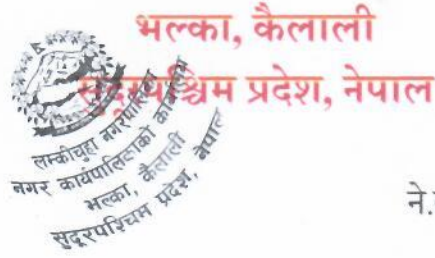 भल्का, कैलाली
सुदूरपश्चिम प्रदेश, नेपाल
लम्कीचुहा नगरपालिका
नगर कार्यपालिकाको कार्यालय
भल्का, कैलाली
सुदूरपश्चिम प्रदेश, नेपाल
ने.